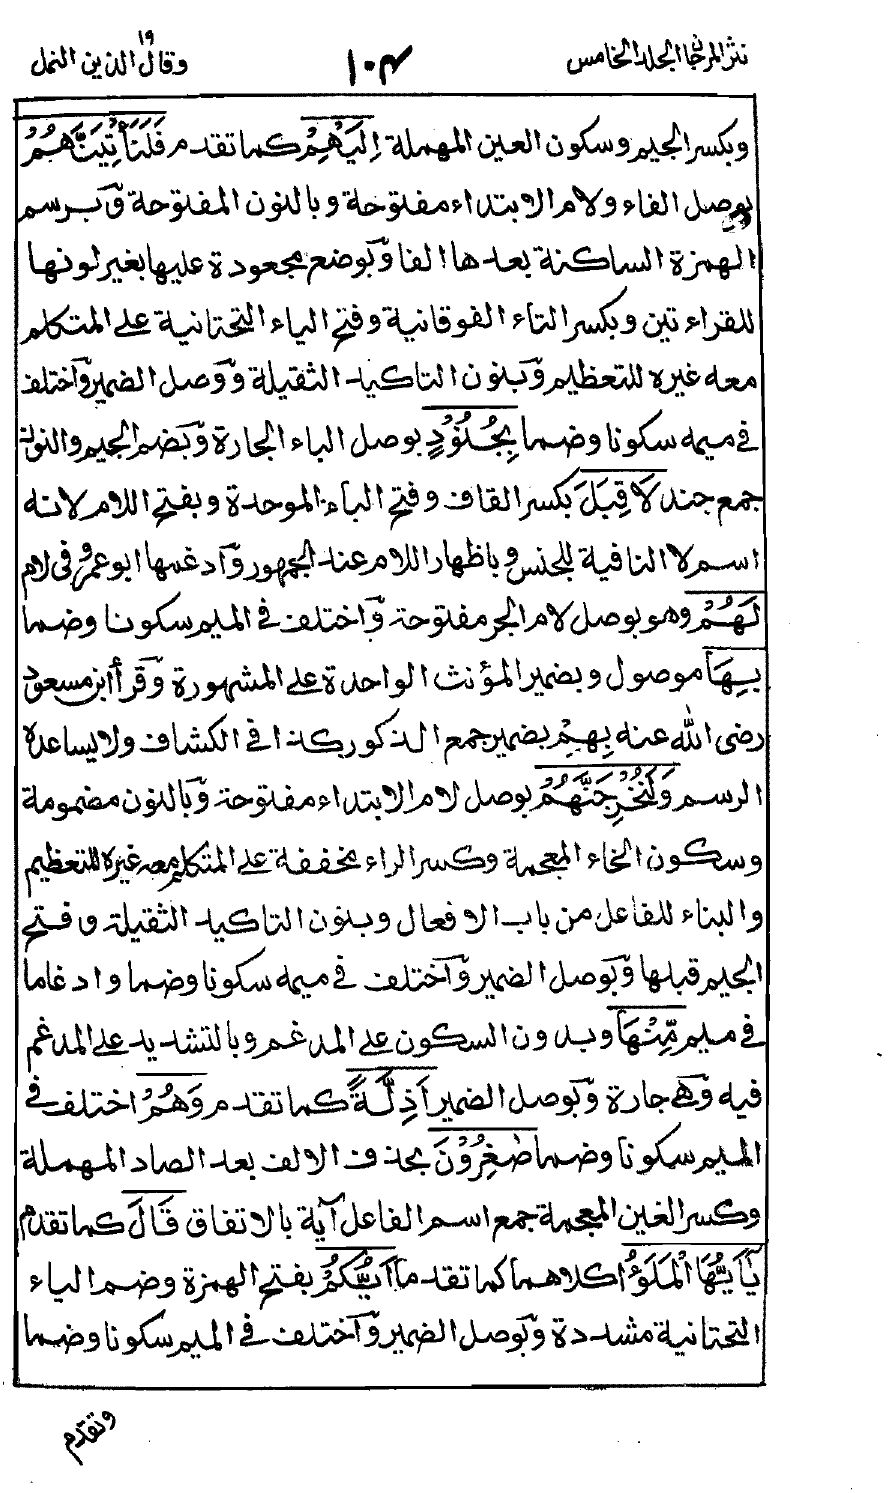 نثر المرجان المجلد الخامس
١٠٤
وقال الذين ١٩ النمل
وبكسر الجيم وسكون العين المهملة اِلَيْهِمْ كما تقدم فَلَنَأْتِيَنَّهُمْ
بوصل الفاء ولام الابتداء مفتوحة وبالنون المفتوحة وَبرسم
الهمزة الساكنة بعدها الفا وَبوضع مجعودة عليها بغير لونها
للقراءتين وبكسر التاء الفوقانية وفتح الياء التحتانية على المتكلم
معه غيره للتعظيم وَبنون التاكيد الثقيلة وَوصل الضمير وَاختلف
في ميمه سكونا وضما بِجُنُوْدٍ بوصل الباء الجارة وَبضم الجيم والنون
جمع جند لَا قِبَلَ بكسر القاف وفتح الباء الموحدة وبفتح اللام لانه
اسم لا النافية للجنس وباظهار اللام عند الجمهور وَادغمها ابو عمرو في لام
لَهُمْ وهو بوصل لام الجر مفتوحة وَاختلف في الميم سكونا وضما
بِهَا موصول وبضمير المؤنث الواحدة على المشهورة وَقرأ ابن مسعود
رضى الله عنه بِهِمْ بضمير جمع الذكور كذا في الكشاف ولا يساعده
الرسم وَلَنُخْرِجَنَّهُمْ بوصل لام الابتداء مفتوحة وَبالنون مضمومة
وسكون الخاء المعجمة وكسر الراء مخففة على المتكلم معه غيره للتعظيم
والبناء للفاعل من باب الافعال وبنون التاكيد الثقيلة وفتح
الجيم قبلها وَبوصل الضمير وَاختلف في ميمه سكونا وضما وادغاما
في ميم مِّنْهَا وبدون السكون على المدغم وبالتشديد على المدغم
فيه وَهي جارة وَبوصل الضمير اَذِلَّةً كما تقدم وَهُمْ اختلف في
الميم سكونا وضما صٰغِرُوْنَ بحذف الالف بعد الصاد المهملة
وكسر الغين المعجمة جمع اسم الفاعل آية بالاتفاق قَالَ كما تقدم
يٰٓاَيُّهَا الْمَلَؤُا كلاهما كما تقدما اَيُّكُمْ بفتح الهمزة وضم الياء
التحتانية مشددة وَبوصل الضمير وَاختلف في الميم سكونا وضما
وتقدم